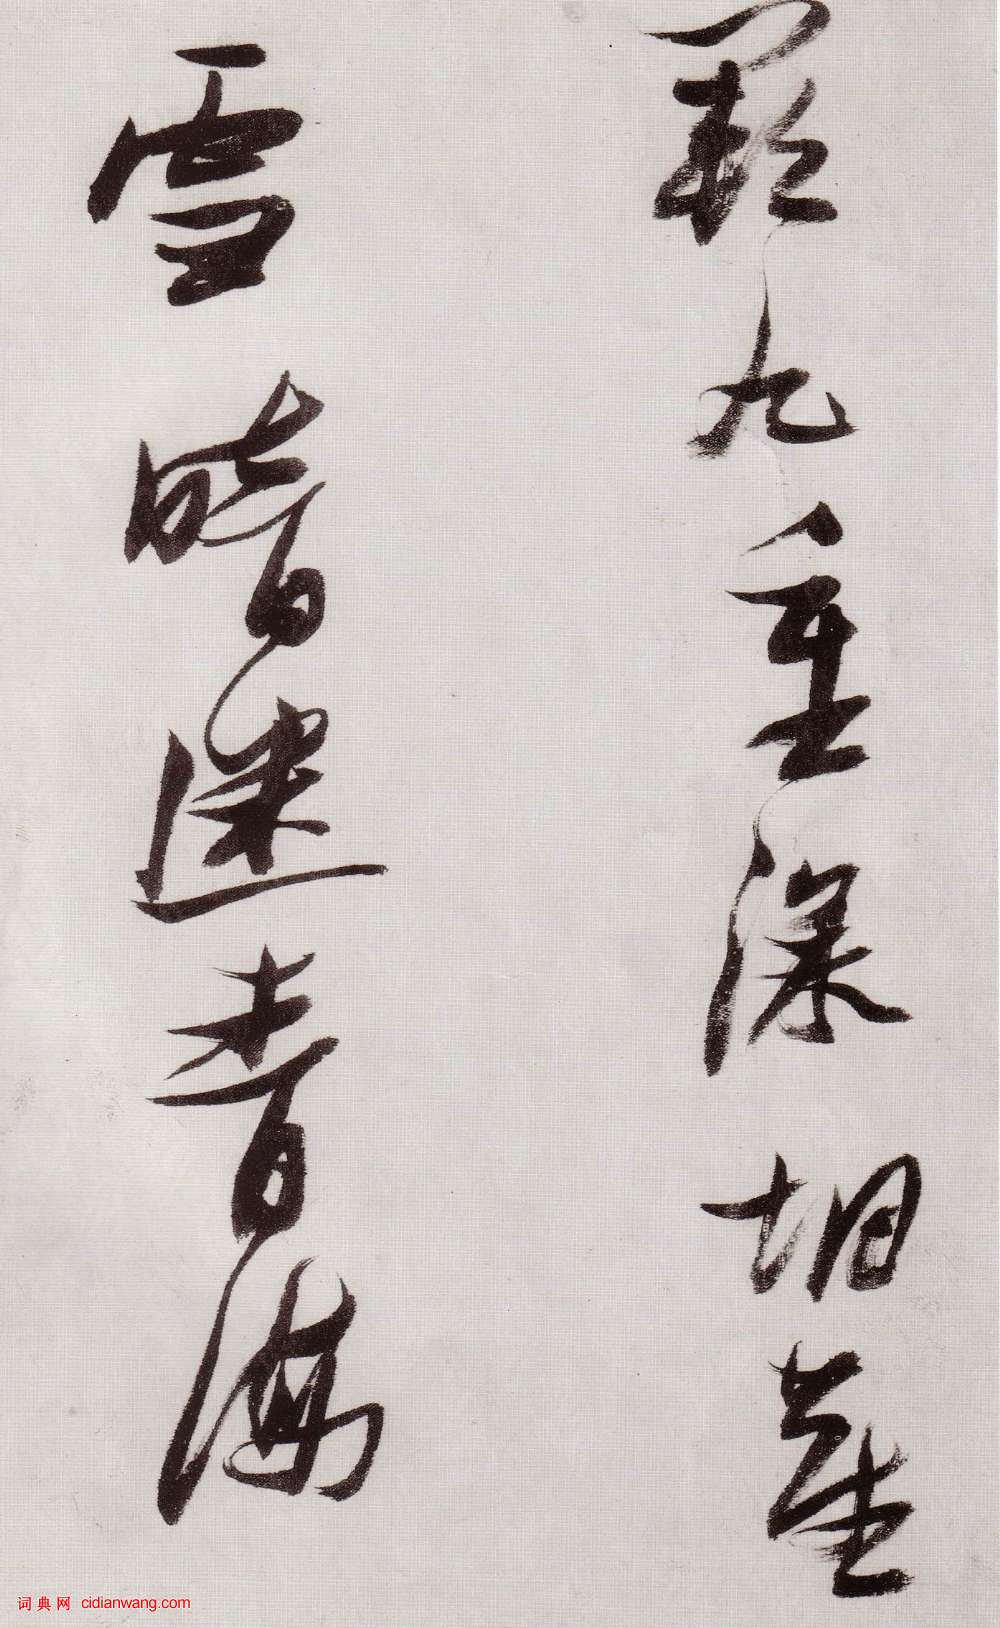 闕九重深
雪暗迷青海
词典网 cidianwang.com